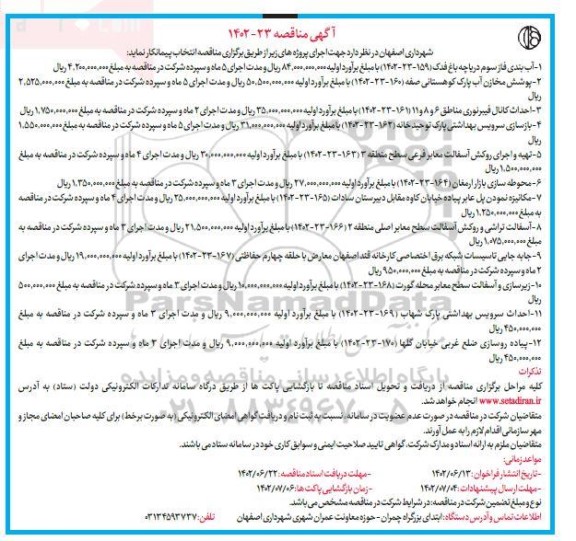 آگهی مناقصه ۲۳-۱۴۰۲
شهرداری اصفهان در نظر دارد جهت اجرای پروژه های زیر از طریق برگزاری مناقصه انتخاب پیمانکار نماید:
۱-آب بندی فاز سوم دریاچه باغ فدک (۱۵۹-۲۳-۱۴۰۲) با مبلغ برآورد اولیه ۸۴،۰۰۰،۰۰۰،۰۰۰ ریال و مدت اجرای ۵ ماه و سپرده شرکت در مناقصه به مبلغ ۴،۲۰۰،۰۰۰،۰۰۰ ریال
۲-پوشش مخازن آب پارک کوهستانی صفه (۱۶۰-۲۳-۱۴۰۲) با مبلغ برآورد اولیه ۵۰،۵۰۰،۰۰۰،۰۰۰ ریال و مدت اجرای ۵ ماه و سپرده شرکت در مناقصه به مبلغ ۲،۵۲۵،۰۰۰،۰۰۰
ریال
۳-احداث کانال فیبرنوری مناطق ۶ و ۸ و ۱۱ (۱۶۱-۲۳-۱۴۰۲) با مبلغ برآورد اولیه ۳۵،۰۰۰،۰۰۰،۰۰۰ ریال و مدت اجرای ۲ ماه و سپرده شرکت در مناقصه به مبلغ ۱،۷۵۰،۰۰۰،۰۰۰ ریال
۴-بازسازی سرویس بهداشتی پارک توحیدخانه (۱۶۲-۲۳-۱۴۰۲) با مبلغ برآورد اولیه ۳۱،۰۰۰،۰۰۰،۰۰۰ ریال و مدت اجرای ۵ ماه و سپرده شرکت در مناقصه به مبلغ ۱،۵۵۰،۰۰۰،۰۰۰
ریال
۵-تهیه و اجرای روکش آسفالت معابر فرعی سطح منطقه ۳ (۱۶۳-۲۳-۱۴۰۲) با مبلغ برآورد اولیه ۳۰،۰۰۰،۰۰۰،۰۰۰ ریال و مدت اجرای ۴ ماه و سپرده شرکت در مناقصه به مبلغ
۱،۵۰۰،۰۰۰،۰۰۰ ریال
۶-محوطه سازی بازار ارمغان (۱۶۴-۲۳-۱۴۰۲) با مبلغ برآورد اولیه ۲۷،۰۰۰،۰۰۰،۰۰۰ ریال و مدت اجرای ۳ ماه و سپرده شرکت در مناقصه به مبلغ ۱،۳۵۰،۰۰۰،۰۰۰ ریال
۷-مکانیزه نمودن پل عابر پیاده خیابان کاوه مقابل دبیرستان سادات (۱۶۵-۲۳-۱۴۰۲) با مبلغ برآورد اولیه ۲۵،۰۰۰،۰۰۰،۰۰۰ ریال و مدت اجرای ۴ ماه و سپرده شرکت در مناقصه
به مبلغ ۱،۲۵۰،۰۰۰،۰۰۰ ریال
۸-آسفالت تراشی و روکش آسفالت سطح معابر اصلی منطقه ۳ (۱۶۶-۲۳-۱۴۰۲) با مبلغ برآورد اولیه ۲۱،۵۰۰،۰۰۰،۰۰۰ ریال و مدت اجرای ۳ ماه و سپرده شرکت در مناقصه به
مبلغ ۱،۰۷۵،۰۰۰،۰۰۰ ریال
۹-جابه جایی تاسیسات شبکه برق اختصاصی کارخانه قند اصفهان معارض با حلقه چهارم حفاظتی (۱۶۷-۲۳-۱۴۰۲) با مبلغ برآورد اولیه ۱۹،۰۰۰،۰۰۰،۰۰۰ ریال و مدت اجرای
۲ ماه و سپرده شرکت در مناقصه به مبلغ ۹۵۰،۰۰۰،۰۰۰ ریال
۱۰-زیرسازی و آسفالت سطح معابر محله گورت (۱۶۸-۲۳-۱۴۰۲) با مبلغ برآورد اولیه ۱۰،۰۰۰،۰۰۰،۰۰۰ ریال و مدت اجرای ۳ ماه و سپرده شرکت در مناقصه به مبلغ ۵۰۰،۰۰۰،۰۰۰
ریال
۱۱-احداث سرویس بهداشتی پارک شهاب (۱۶۹-۲۳-۱۴۰۲) با مبلغ برآورد اولیه ۹،۰۰۰،۰۰۰،۰۰۰ ریال و مدت اجرای ۳ ماه و سپرده شرکت در مناقصه به مبلغ
۴۵۰،۰۰۰،۰۰۰ ریال
۱۲-پیاده روسازی ضلع غربی خیابان گلها (۱۷۰-۲۳-۱۴۰۲) با مبلغ برآورد اولیه ۹،۰۰۰،۰۰۰،۰۰۰ ریال و مدت اجرای ۳ ماه و سپرده شرکت در مناقصه به مبلغ
۴۵۰،۰۰۰،۰۰۰ ریال
تذکرات
کلیه مراحل برگزاری مناقصه از دریافت و تحویل اسناد مناقصه تا بازگشایی پاکت ها از طریق درگاه سامانه تدارکات الکترونیکی دولت (ستاد) به آدرس
www.setadiran.ir انجام خواهد شد.
متقاضیان شرکت در مناقصه در صورت عدم عضویت در سامانه، نسبت به ثبت نام و دریافت گواهی امضای الکترونیکی (به صورت برخط) برای کلیه صاحبان امضای مجاز و
مهر سازمانی اقدام لازم را به عمل آورند.
متقاضیان ملزم به ارائه اسناد و مدارک شرکت، گواهی تایید صلاحیت ایمنی و سوابق کاری خود در سامانه ستاد می باشند.
مواعد زمانی:
-تاریخ انتشار فراخوان: ۱۴۰۲/۰۶/۱۳ -مهلت دریافت اسناد مناقصه: ۱۴۰۲/۰۶/۲۲
-مهلت ارسال پیشنهادات: ۱۴۰۲/۰۷/۰۴ -زمان بازگشایی پاکت ها: ۱۴۰۲/۰۷/۰۶
نوع و مبلغ تضمین شرکت در مناقصه: در شرایط شرکت در مناقصه مشخص می باشد.
اطلاعات تماس و آدرس دستگاه: ابتدای بزرگراه چمران - حوزه معاونت عمران شهری شهرداری اصفهان تلفن: ۰۳۱۳۴۵۹۳۷۳۷
ParsNamadData
پایگاه اطلاع رسانی مناقصه و مزایده
۰۲۱-۸۸۳۴۹۶۷۰-۵